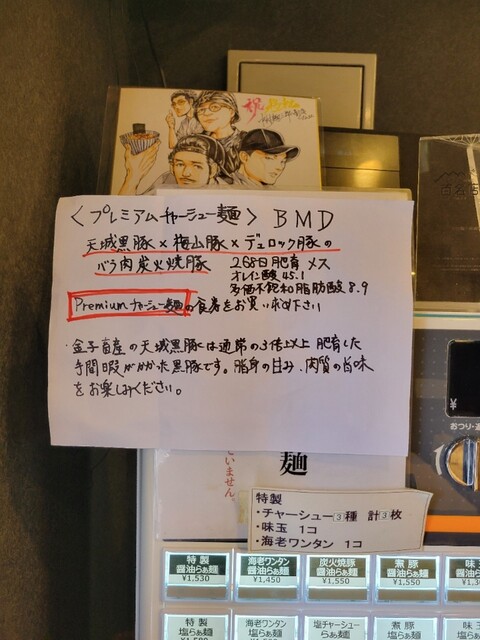 祝
〈プレミアムチャーシュー麺〉BMD
天城黒豚×梅山豚×デュロック豚の
バラ肉炭火焼豚 268日肥育 メス
オレイン酸45.1
多価不飽和脂肪酸8.9
Premiumチャーシュー麺の食券をお買い求め下さい
・金子畜産の天城黒豚は通常の3倍以上肥育した
手間暇がかかった黒豚です。脂身の甘み、肉質の旨味
をお楽しみください。
¥
麺
ていません。
特製
・チャーシュー③種 計③枚
・味玉 1コ
・海老ワンタン 1コ
特製
醤油らぁ麺
¥1,530
海老ワンタン
醤油らぁ麺
¥1,450
炭火焼豚
醤油らぁ麺
¥1,550
煮豚
醤油らぁ麺
¥1,550
特製
塩らぁ麺
海老ワンタン
塩らぁ麺
塩チャーシュー
らぁ麺
煮豚
塩らぁ麺